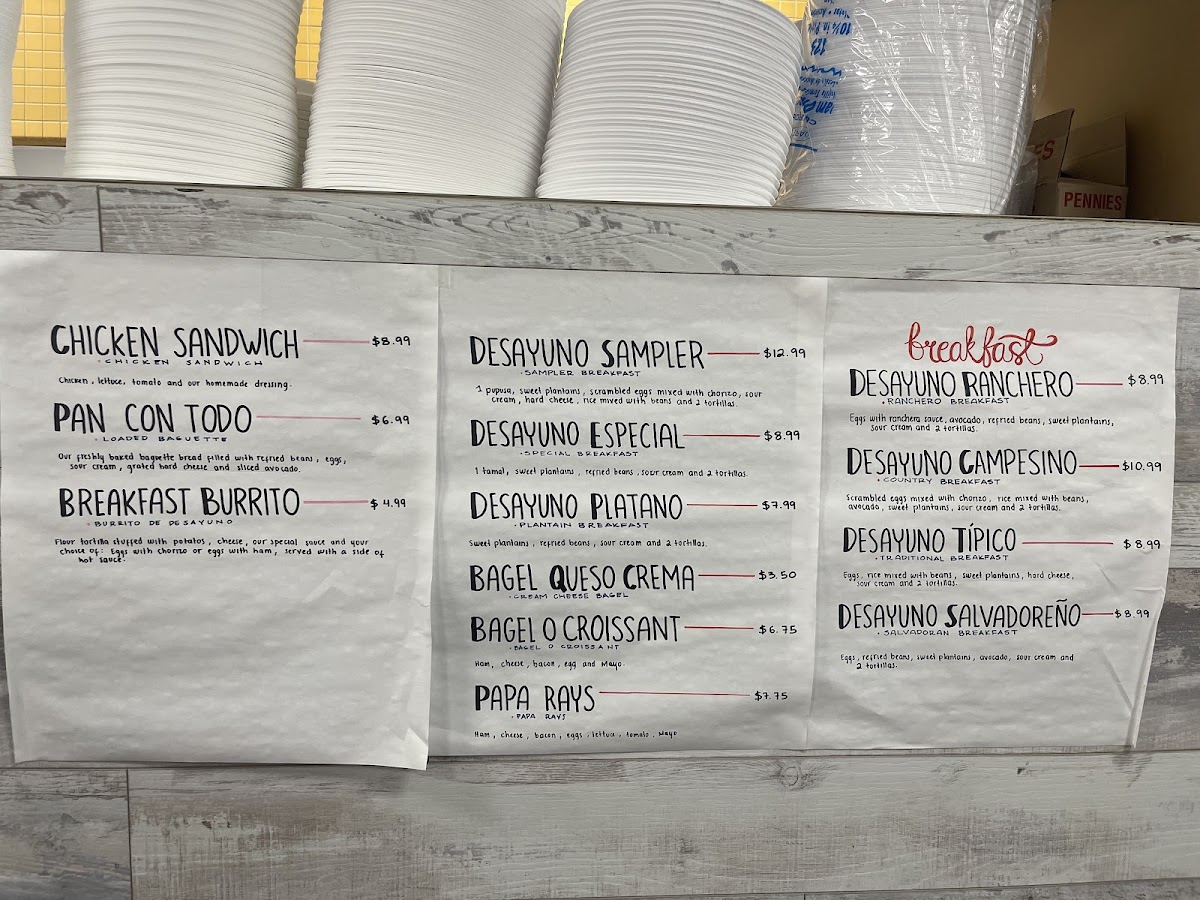 PENNIES
CHICKEN SANDWICH $8.99
• CHICKEN SANDWICH
Chicken, lettuce, tomato and our homemade dressing.
PAN CON TODO $6.99
• LOADED BAGUETTE
Our freshly baked baguette bread filled with refried beans, eggs,
sour cream, grated hard cheese and sliced avocado.
BREAKFAST BURRITO $4.99
• BURRITO DE DESAYUNO
Flour tortilla stuffed with potatos, cheese, our special sauce and your
choise of: Eggs with chorizo or eggs with ham, served with a side of
hot sauce.
DESAYUNO SAMPLER $12.99
• SAMPLER BREAKFAST
1 pupusa, sweet plantains, scrambled eggs mixed with chorizo, sour
cream, hard cheese, rice mixed with beans and 2 tortillas.
DESAYUNO ESPECIAL $8.99
• SPECIAL BREAKFAST
1 tamal, sweet plantains, refried beans, sour cream and 2 tortillas.
DESAYUNO PLATANO $7.99
• PLANTAIN BREAKFAST
Sweet plantains, refried beans, sour cream and 2 tortillas.
BAGEL QUESO CREMA $3.50
• CREAM CHEESE BAGEL
BAGEL O CROISSANT $6.75
• BAGEL O CROISSANT
Ham, cheese, bacon, egg and Mayo.
PAPA RAYS $7.75
• PAPA RAYS
Ham, cheese, bacon, eggs, lettuce, tomato, Mayo
breakfast
DESAYUNO RANCHERO $8.99
• RANCHERO BREAKFAST
Eggs with ranchera sauce, avocado, refried beans, sweet plantains,
sour cream and 2 tortillas.
DESAYUNO CAMPESINO $10.99
• COUNTRY BREAKFAST
Scrambled eggs mixed with chorizo, rice mixed with beans,
avocado, sweet plantains, sour cream and 2 tortillas.
DESAYUNO TÍPICO $8.99
• TRADITIONAL BREAKFAST
Eggs, rice mixed with beans, sweet plantains, hard cheese,
sour cream and 2 tortillas.
DESAYUNO SALVADOREÑO $8.99
• SALVADORAN BREAKFAST
Eggs, refried beans, sweet plantains, avocado, sour cream and
2 tortillas.